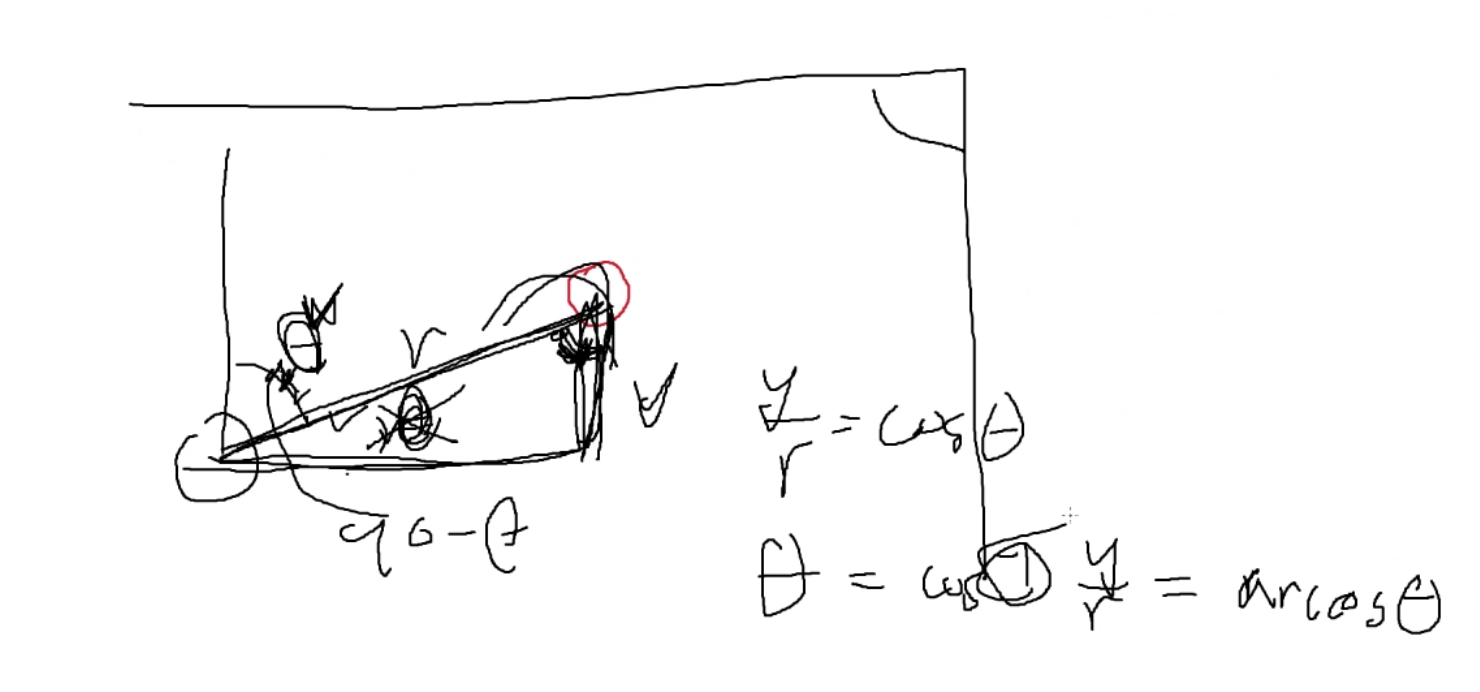 θ
r
θ
y
90-θ
y/r = cos θ
θ = cos⁻¹ y/r = arcosθ